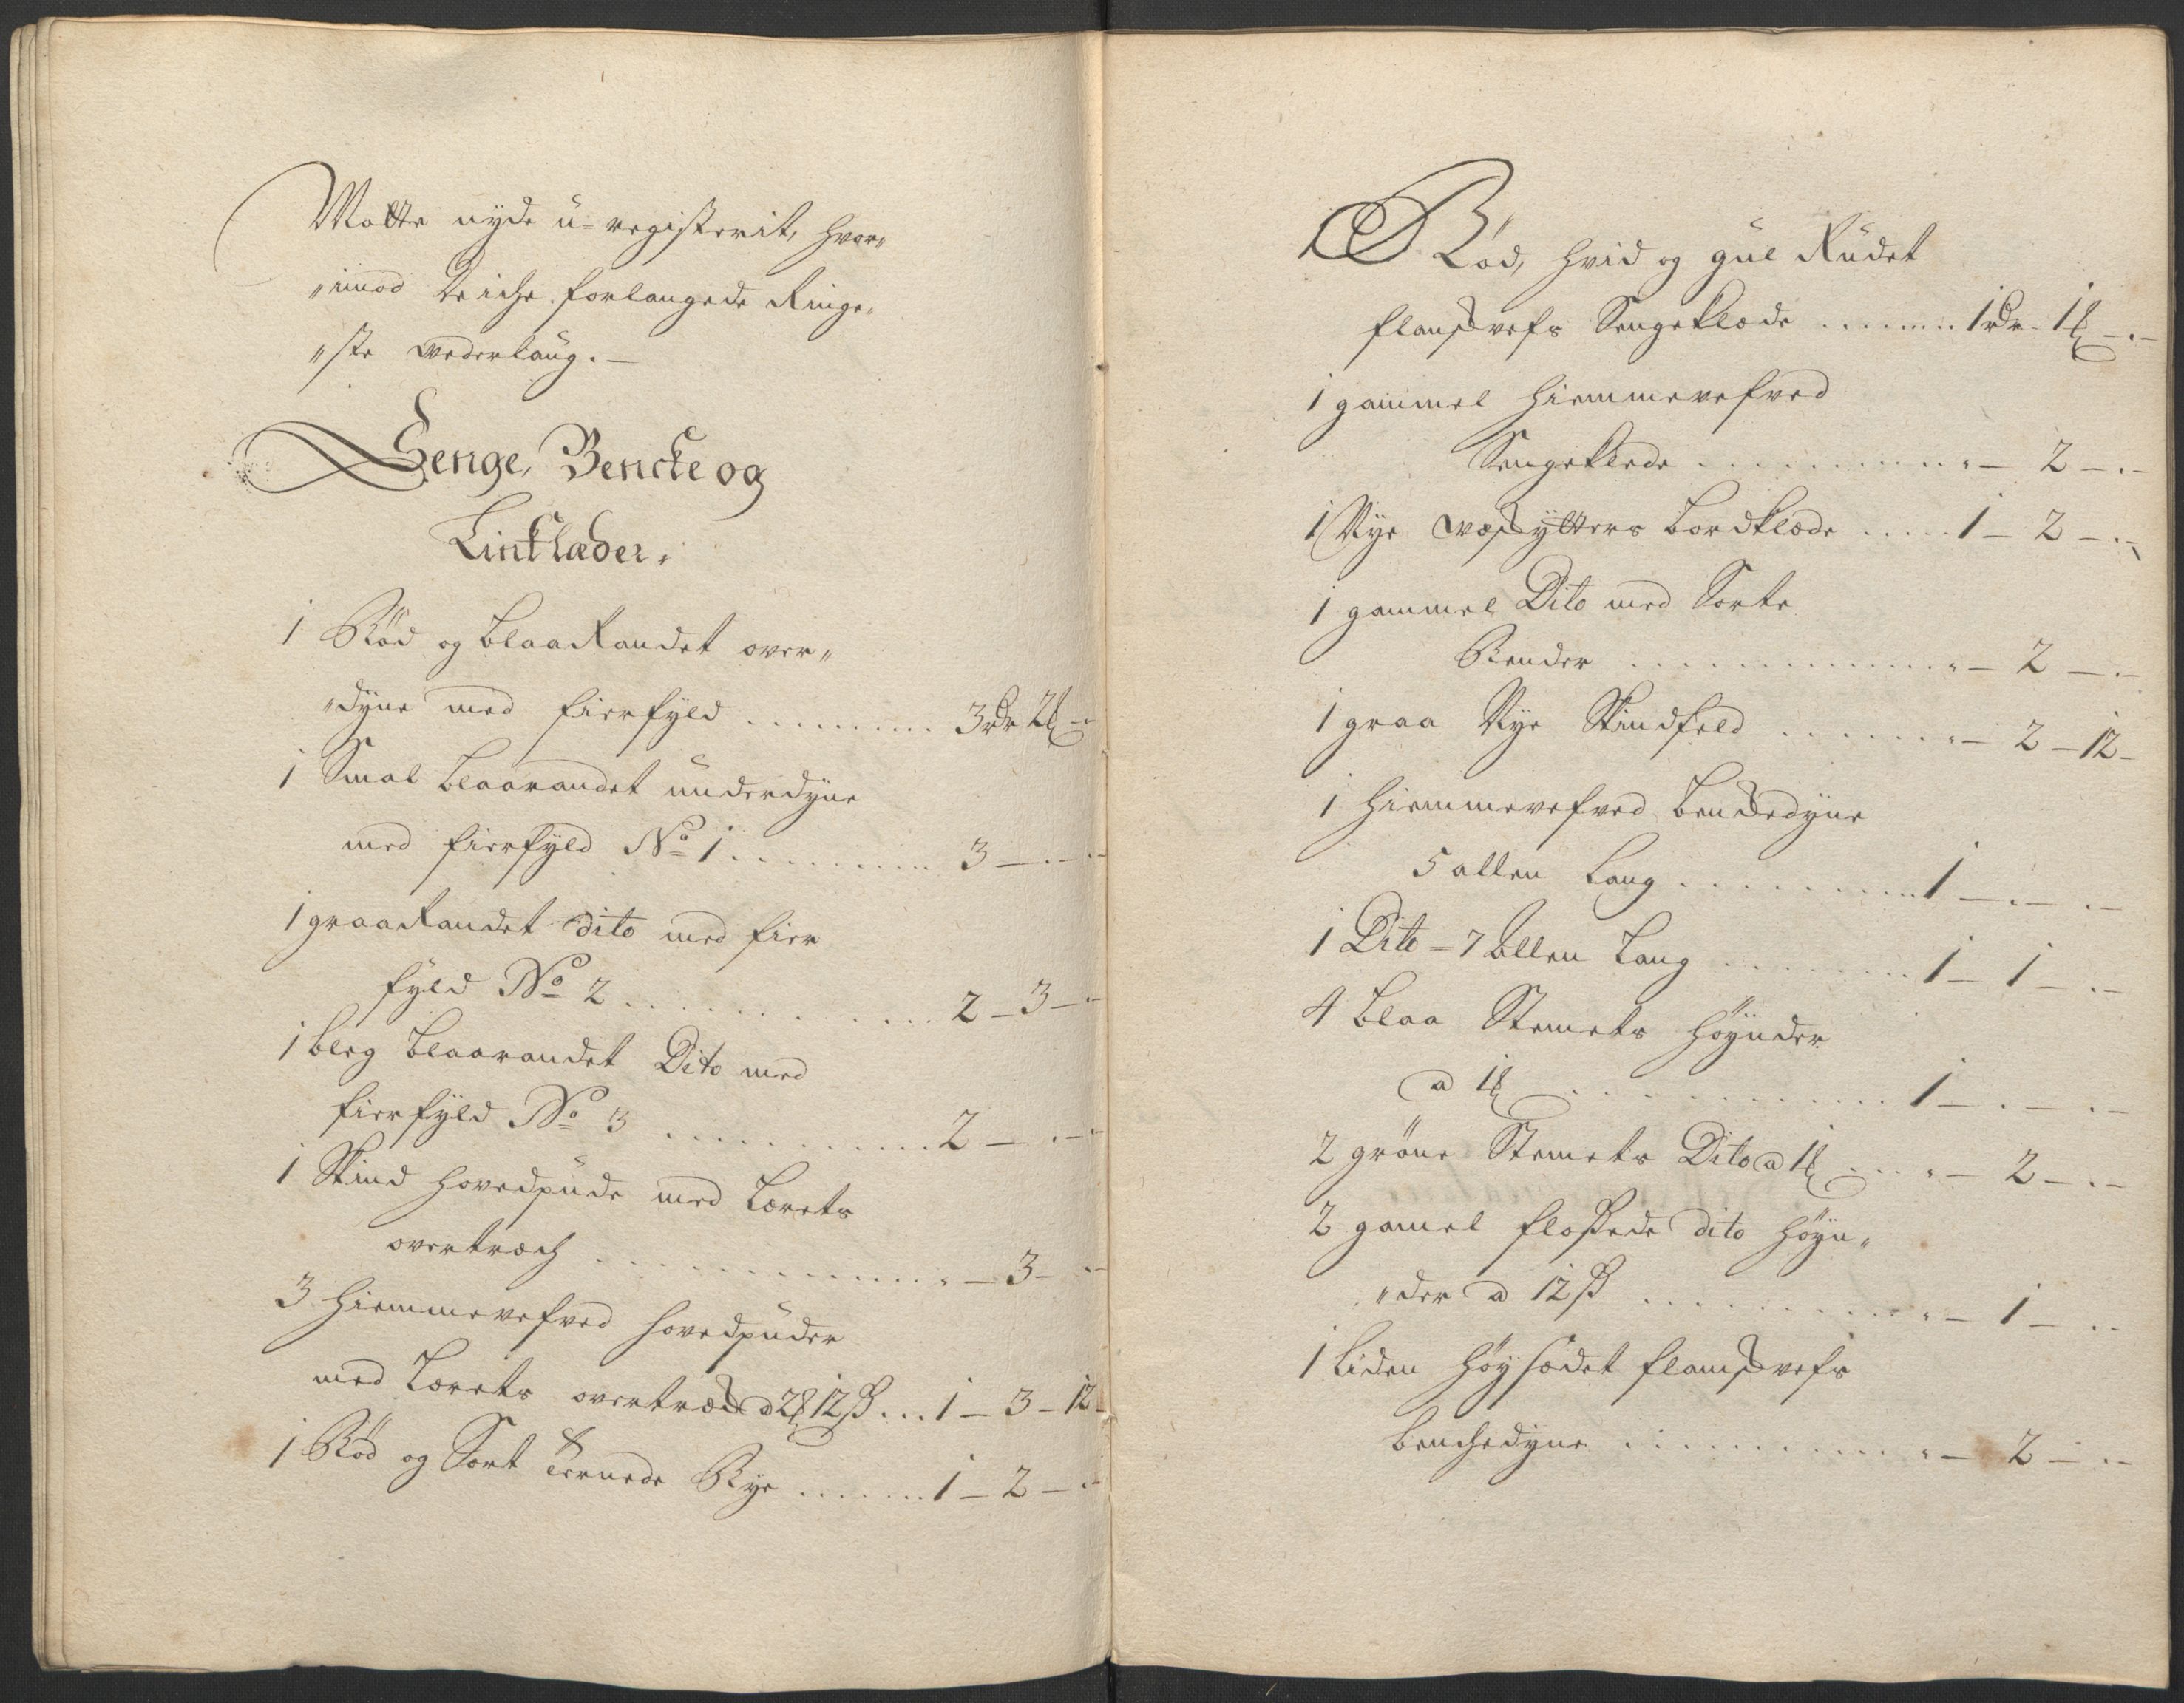 Motte nyde u-registerit, hvor„
„imod Deiche forlangede Ringe„
„ste vederlaug. —
Senge, Bencke og
Linklæder.
1 Röd og blaa Randet over„
„dyne med fierfyld ......... 3 rdr 2 ₰ -
1 Smal blaarandet underdyne
med fierfyld No 1 ......... 3 — . -
1 graa Randet dito med fier
fyld No 2 ......... 2 – 3 – -
1 bleg blaarandet Dito med
fierfyld No 3 ......... 2 — . -
1 Skind hovedpude med Lærets
overtræch ......... „ — 3 - -
3 hiemmevefved hovedpuder
med Lærets overtræck a 2 ₰ 12 ß ... 1 – 3 – 12
1 Röd og Sort Ternede Rye ....... 1 – 2 – -
1 Röd, hvid og gul Rudet
flamskvefs Sengeklæde ....... 1 rdr - 1 ₰ - . -
1 gammel hiemmevefved
Sengeklæde ......... „ – 2 – . –
1 Nye Bordklæde ..... 1 – 2 – . -
1 gammel Dito med Sorte
Render ......... „ – 2 – . –
1 graa Nye Skindfeld ....... „ – 2 – 12 -
1 hiemmevefved benckedyne
5 allen Lang ......... 1 – . – . –
1 Dito – 7 allen Lang ........ 1 – 1 – . –
4 blaa Stemets höynder
a 1 ₰ ......... 1 – . – . –
2 gröne Stemets Dito a 1 ₰ .... „ – 2 – . –
2 gamel flossede dito höyn„
„der a 12 ß ......... „ – 1 – . -
1 liden höysædet flamskvefs
benchedyne ......... „ – 2 – . -